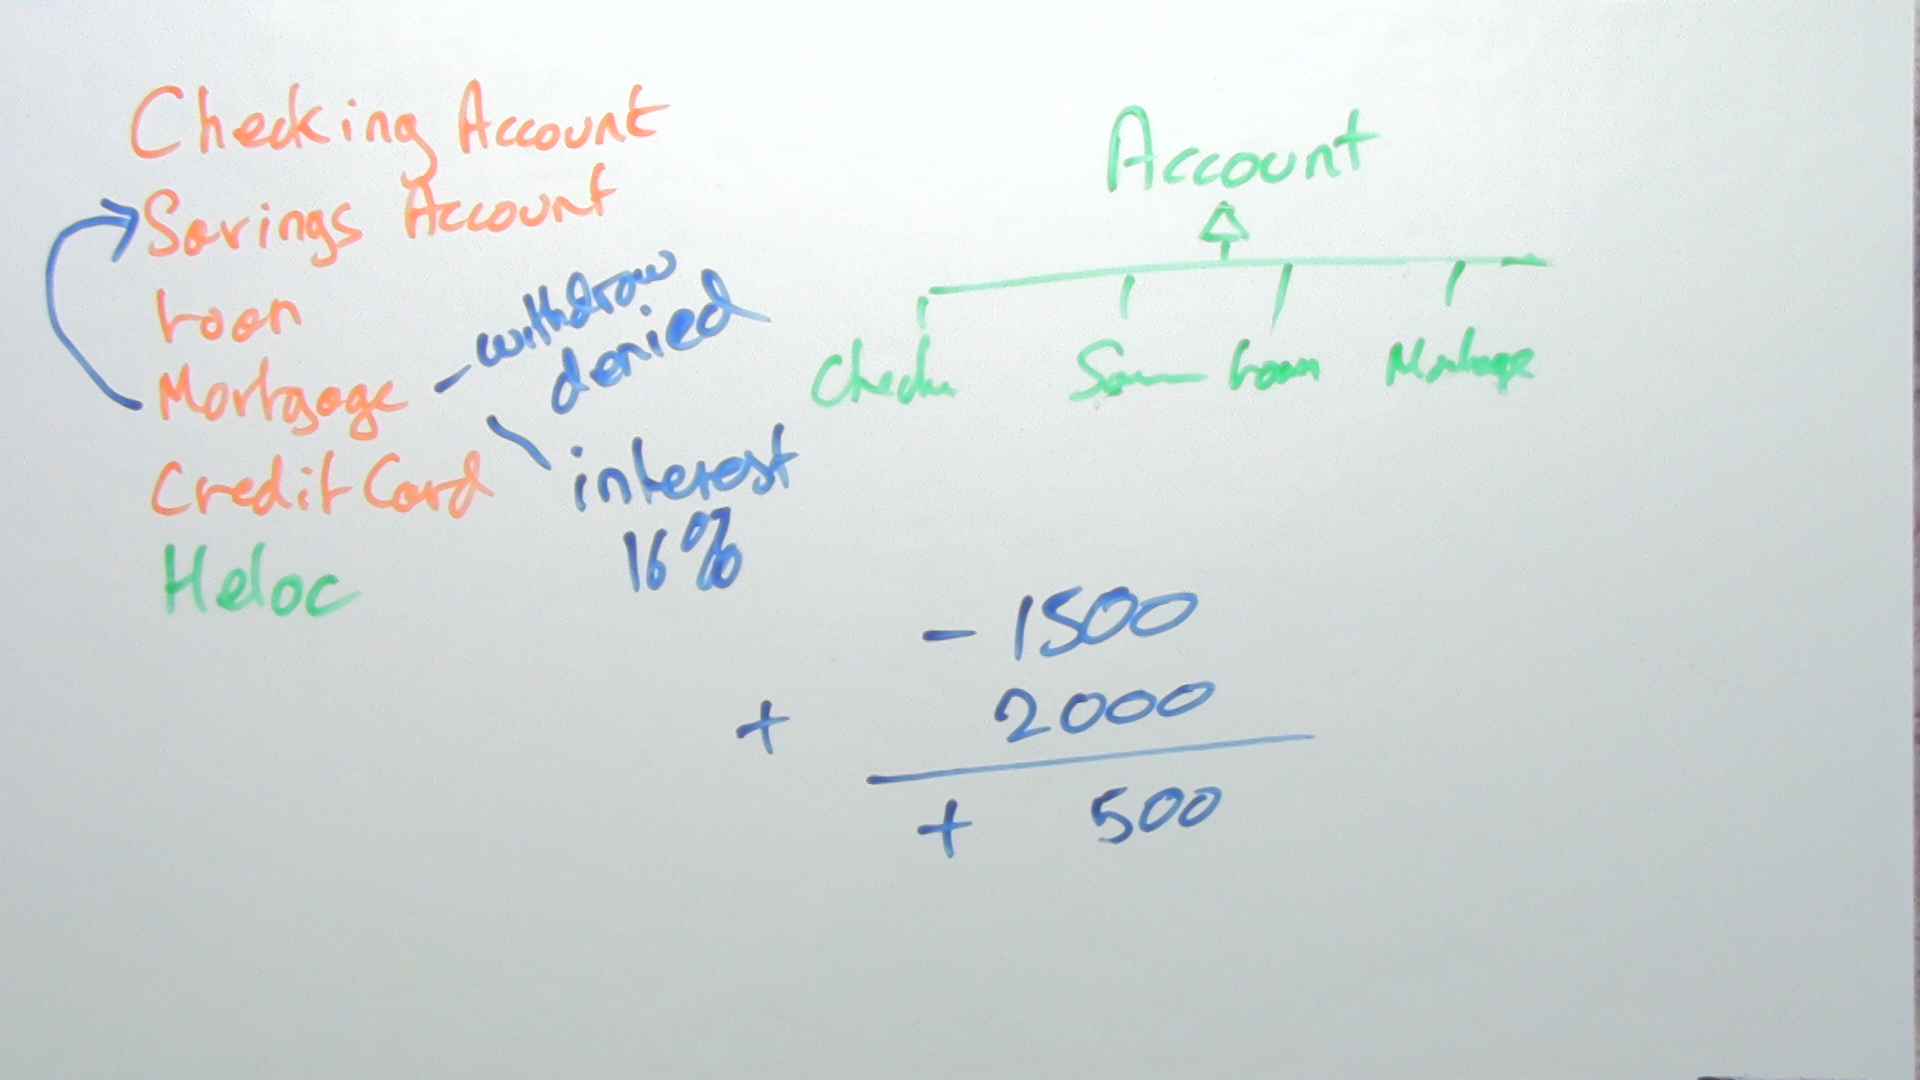 Checking Account
Savings Account
Loan
Mortgage
Credit Card
Heloc
withdraw
denied
interest
16%
Account
Loan
Mortgage
- 1500
+ 2000
+ 500